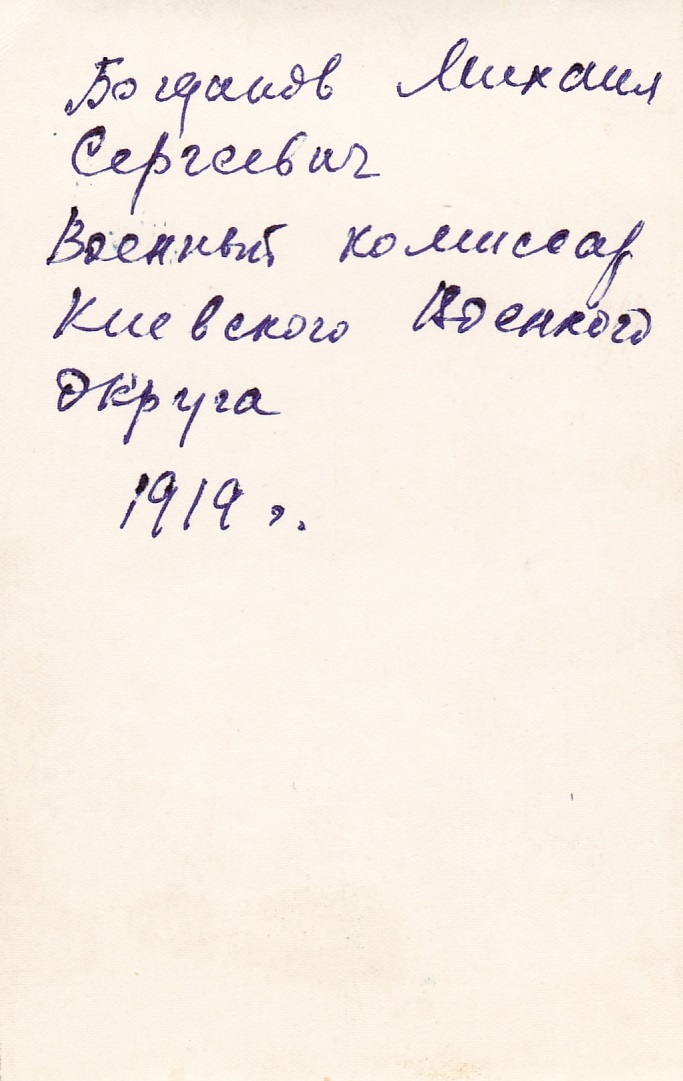 Богданов Михаил
Сергеевич
Военный комиссар
Киевского Военного
Округа
1919 г.